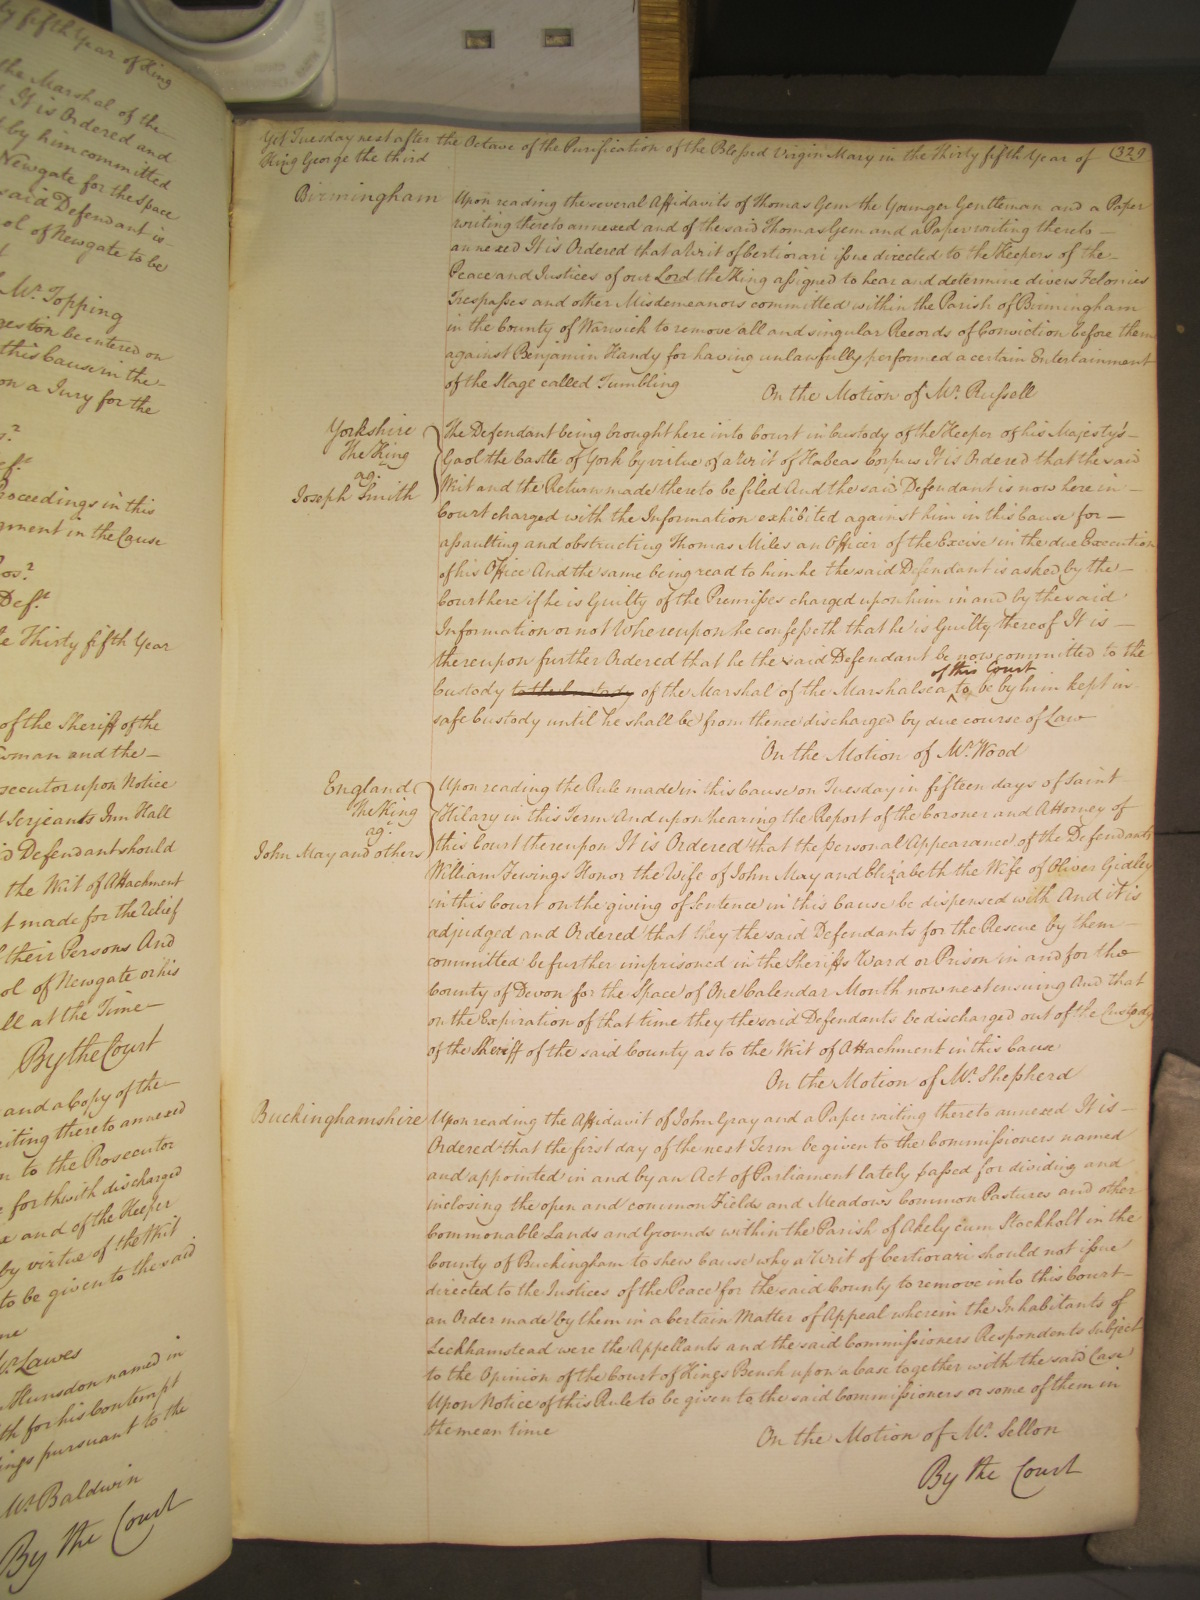 ty fifth Year of King
the Marshal of the
It is Ordered and
by him committed
Newgate for the space
said Defendant is
ol of Newgate to be
Mr. Topping
gestion be entered on
this Cause in the
on a Jury for the
roceedings in this
gment in the Cause
Def.t
e Thirty fifth Year
of the Sheriff of the
woman and the
secutor upon Notice
Serjeants Inn Hall
d Defendant should
the Writ of Attachment
t made for the Relief
their Persons And
ol of Newgate or his
ll at the Time
By the Court
and a Copy of the
riting thereto annexed
n to the Prosecutor
forthwith discharged
and of the Keeper
by virtue of the Writ
to be given to the said
me
Mr. Lawes
Hunsdon named in
ith for his Contempt
ings pursuant to the
Mr. Baldwin
By the Court
Yet Tuesday next after the Octave of the Purification of the Blessed Virgin Mary in the Thirty fifth Year of (329
King George the third
Birmingham Upon reading the several Affidavits of Thomas Gem the Younger Gentleman and a Paper
writing thereto annexed and of the said Thomas Gem and a Paper writing thereto
annexed It is Ordered that a Writ of Certiorari issue directed to the Keepers of the
Peace and Justices of our Lord the King assigned to hear and determine divers Felonies
Trespasses and other Misdemeanors committed within the Parish of Birmingham
in the County of Warwick to remove all and singular Records of Conviction before them
against Benjamin Handy for having unlawfully performed a certain Entertainment
of the Stage called Tumbling
On the Motion of Mr. Russell
Yorkshire The Defendant being brought here into Court in Custody of the Keeper of his Majesty's
The King Gaol the Castle of York by virtue of a Writ of Habeas Corpus It is Ordered that the said
ag.
Joseph Smith Writ and the Return made thereto be filed And the said Defendant is now here in
Court charged with the Information exhibited against him in this Cause for
assaulting and obstructing Thomas Miles an Officer of the Excise in the due Execution
of his Office And the same being read to him he the said Defendant is asked by the
Court here if he is Guilty of the Premisses charged upon him in and by the said
Information or not Whereupon he confesseth that he is Guilty thereof It is
thereupon further Ordered that he the said Defendant be now committed to the
of this Court
Custody to the Custody of the Marshal of the Marshalsea to be by him kept in
safe Custody until he shall be from thence discharged by due course of Law
On the Motion of Mr. Wood
England Upon reading the Rule made in this Cause on Tuesday in fifteen days of Saint
The King Hilary in this Term And upon hearing the Report of the Coroner and Attorney of
ag.
John May and others this Court thereupon It is Ordered that the personal Appearance of the Defendants
William Fewings Honor the Wife of John May and Elizabeth the Wife of Oliver Gidley
in this Court on the giving of Sentence in this Cause be dispensed with And it is
adjudged and Ordered that they the said Defendants for the Rescue by them
committed be further imprisoned in the Sheriffs Ward or Prison in and for the
County of Devon for the Space of One Calendar Month now next ensuing And that
on the Expiration of that time they the said Defendants be discharged out of the Custody
of the Sheriff of the said County as to the Writ of Attachment in this Cause
On the Motion of Mr. Shepherd
Buckinghamshire Upon reading the Affidavit of John Gray and a Paper writing thereto annexed It is
Ordered that the first day of the next Term be given to the Commissioners named
and appointed in and by an Act of Parliament lately passed for dividing and
inclosing the open and common Fields and Meadows Common Pastures and other
Commonable Lands and Grounds within the Parish of Akely cum Stockholt in the
County of Buckingham to shew Cause why a Writ of Certiorari should not issue
directed to the Justices of the Peace for the said County to remove into this Court
an Order made by them in a Certain Matter of Appeal wherein the Inhabitants of
Leckhamstead were the Appellants and the said Commissioners Respondents Subject
to the Opinion of the Court of Kings Bench upon a Case together with the said Case
Upon Notice of this Rule to be given to the said Commissioners or some of them in
the mean time
On the Motion of Mr. Sellon
By the Court